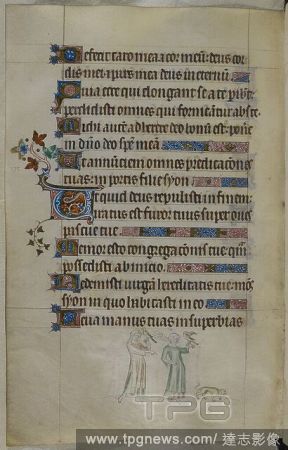 Defecit caro mea ⁊ cor meū: deus cor
dis mei ⁊ pars mea deus in eternū
Quia ecce qui elongant se a te
perdidisti omnes qui abs te
Michi autē adherere deo bonū est: pone
in dño deo spem meā
Ut annūciem omnes predicaciones
tuas: in portis filie syon
Ut quid deus repulisti in finem:
iratus est furor tuus super oues
pascue tue
Memor esto congregacionis tue: quā
possedisti ab inicio
Redemisti uirgā hereditatis tue: mons
syon in quo habitasti in eo
Leua manus tuas in superbias
TPG
www.tpgnews.com / 達志影像